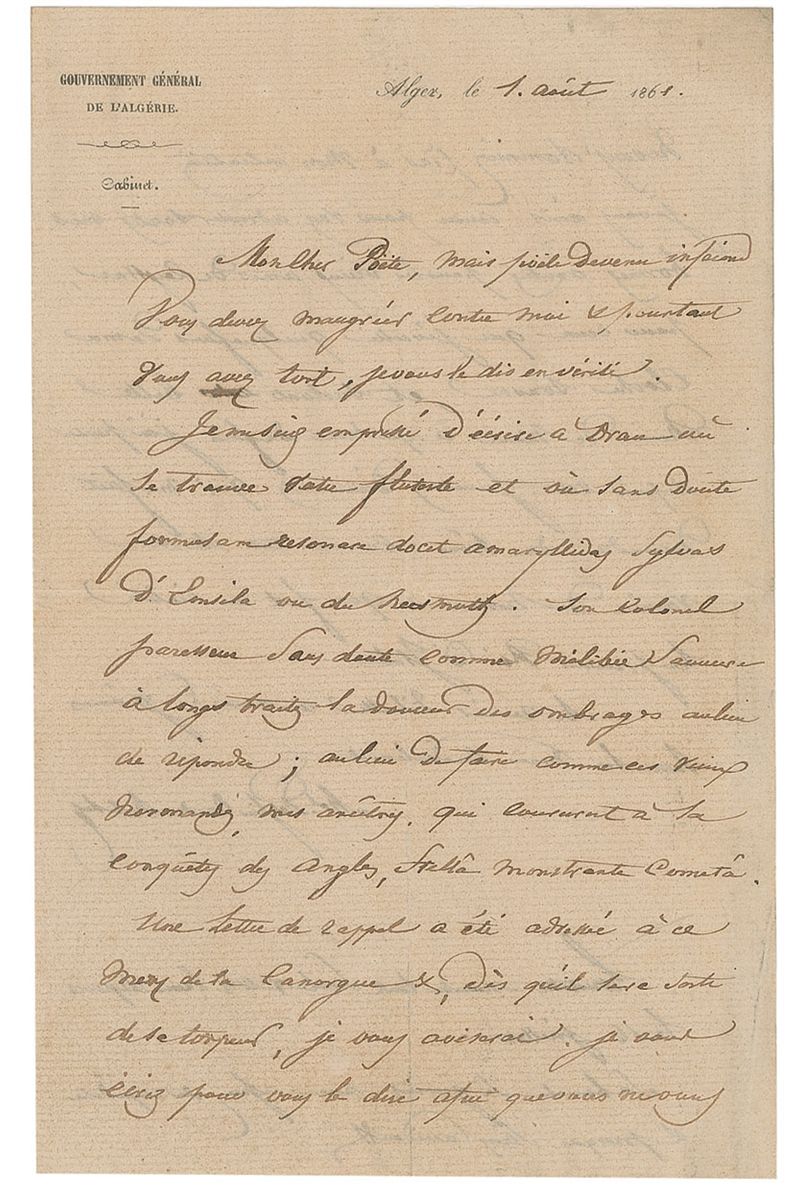 GOUVERNEMENT GÉNÉRAL
DE L'ALGÉRIE.
Cabinet.
Alger, le 1. août 1861.
Mon cher Poëte, mais poële devenu infécond
Vous devez maugréer contre moi & pourtant
Vous avez tort, je vous le dis en vérité.
Je me suis empressé d'écrire à Oran où
se trouve votre et où sans doute
formosam resonare docet amaryllida Sylvas
d' ou de . Son Colonel
paresseux sans doute comme Mélibée savoure
à longs traits la douceur des ombrages au lieu
de répondre ; au lieu de faire comme ces vieux
normands, mes ancêtres, qui coururent à la
conquête des Angles, Stellâ monstrante Cometâ.
Une lettre de rappel a été adressée à ce
de la Canorgue &, dès qu'il sera sorti
de sa torpeur, je vous aviserai. je vous
écris pour vous le dire afin que vous ne vous